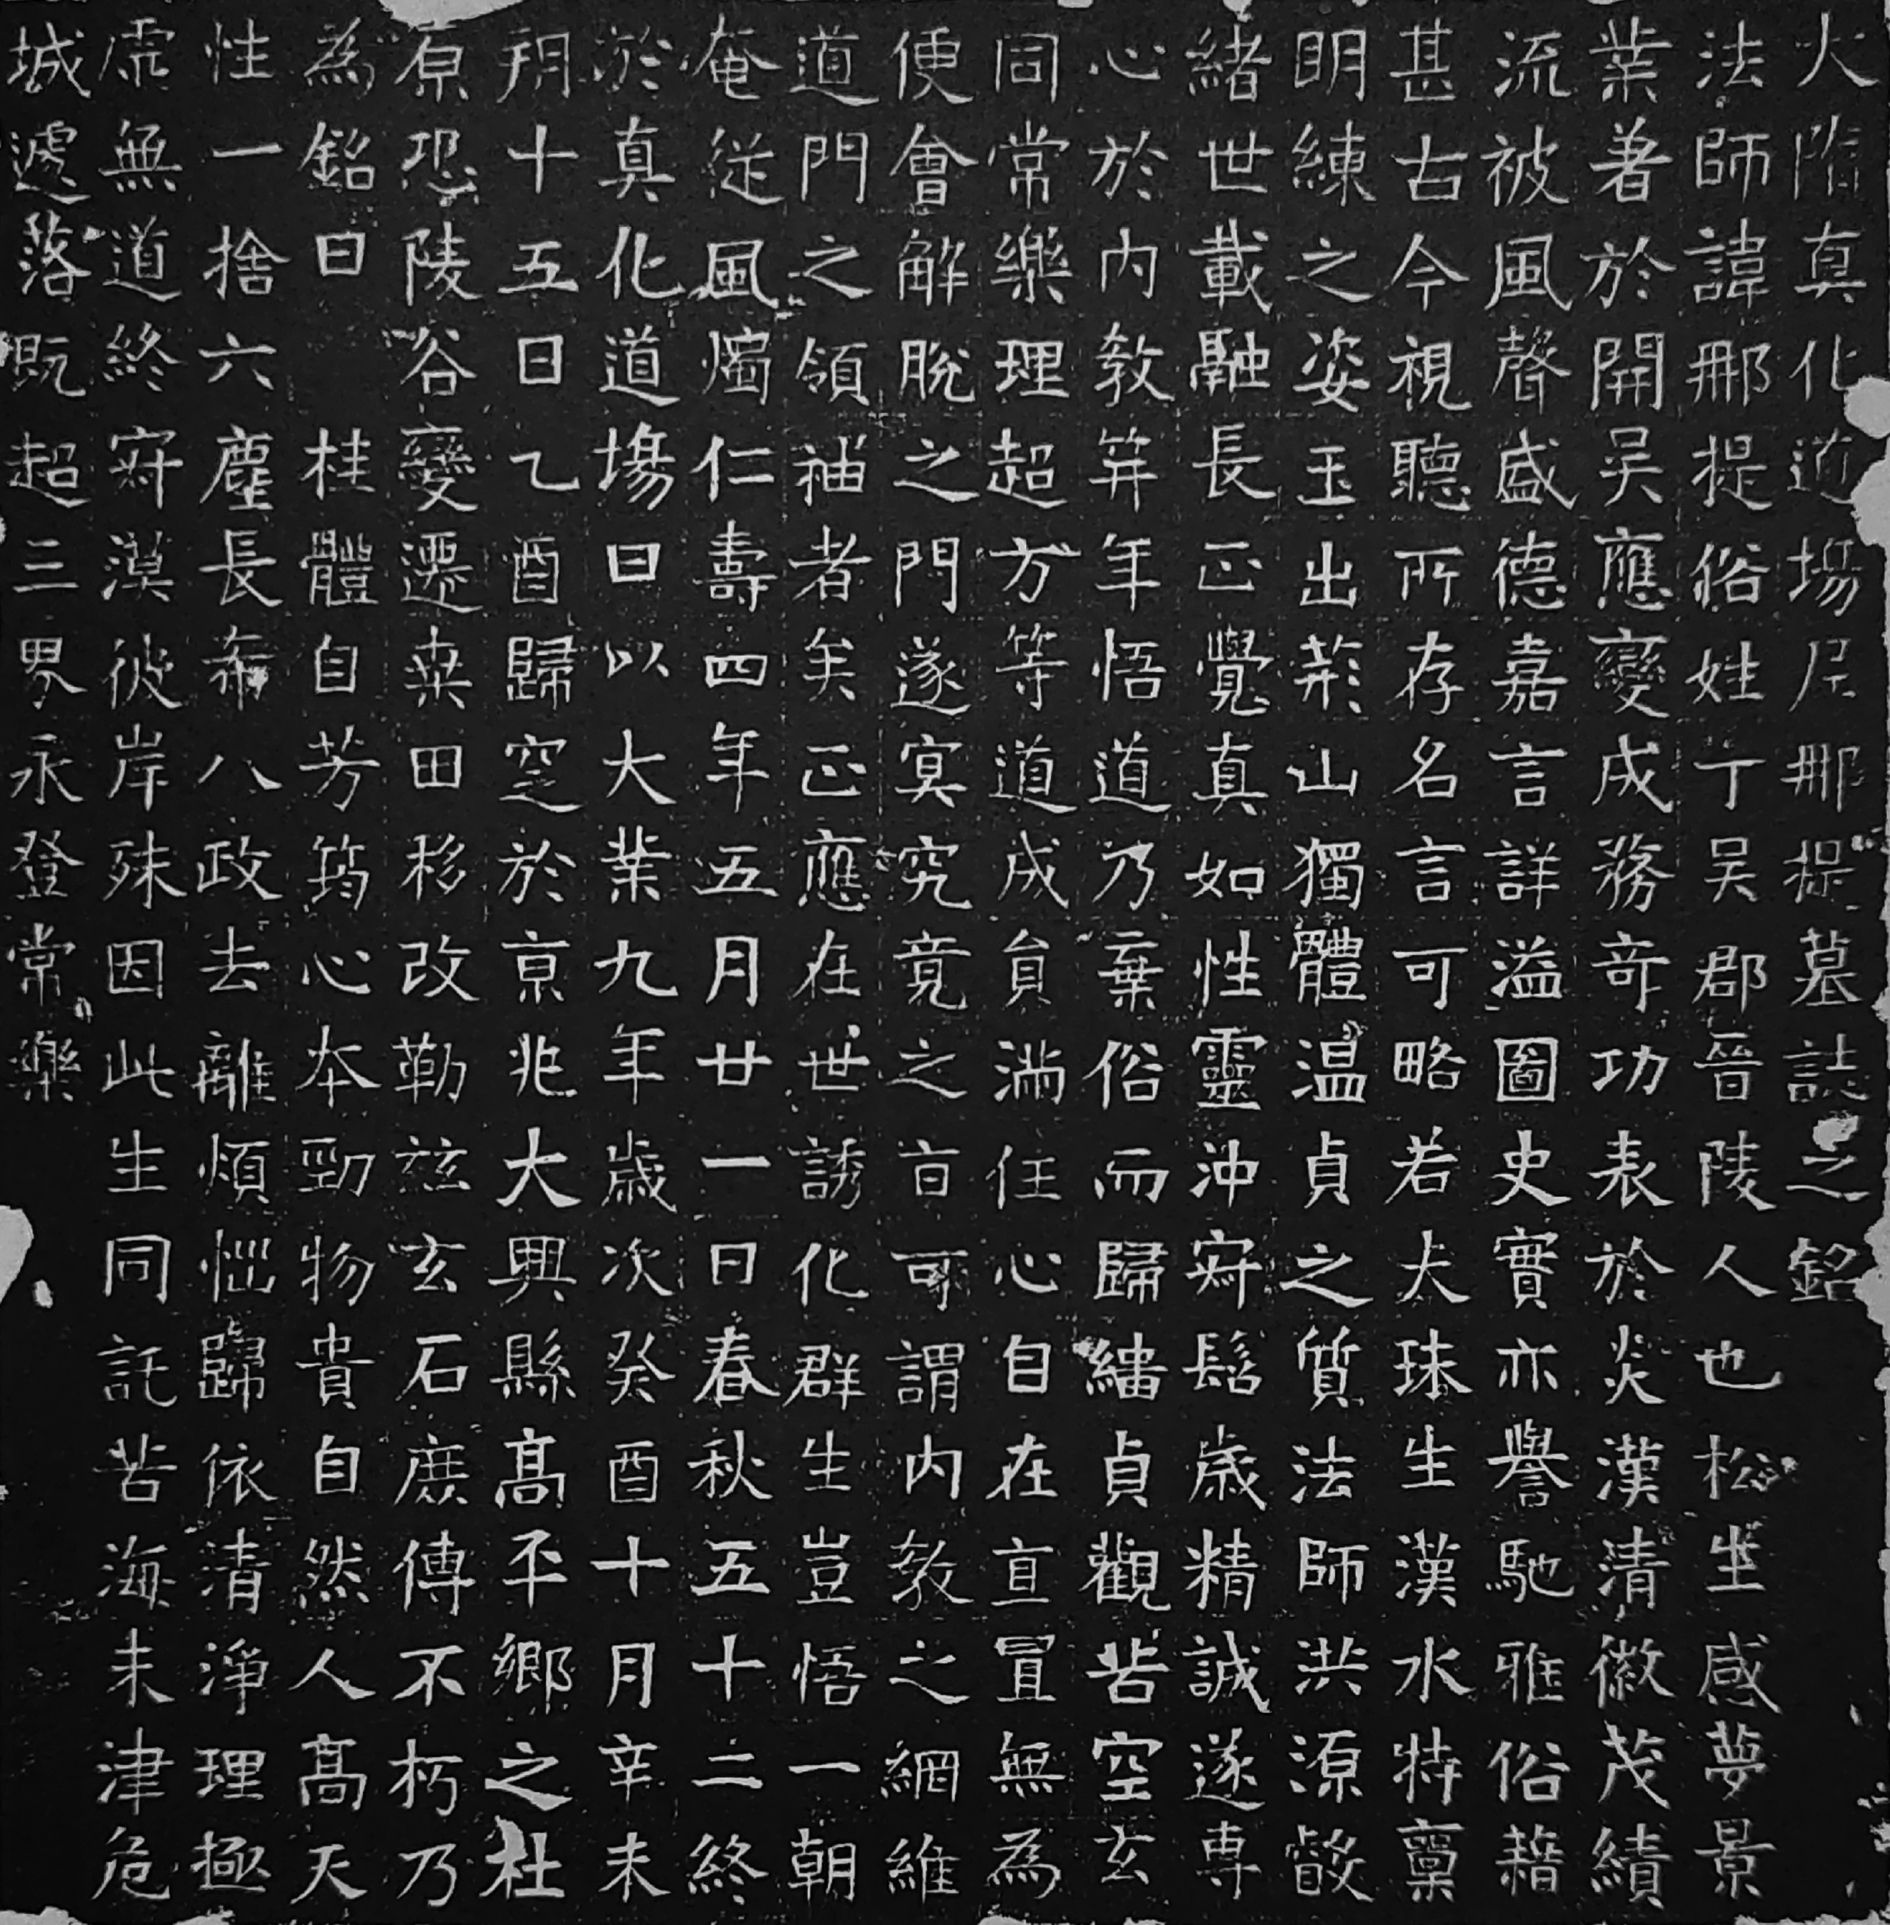 大隋真化道場尼那提墓誌之銘
法師諱那提俗姓丁吳郡晉陵人也松生感夢景
業著於開吳應變成務奇功表於炎漢清徽茂績
流被風聲盛德嘉言詳溢圖史實亦譽馳雅俗藉
甚古今視聽所存名言可略若夫珠生漢水特稟
明練之姿玉出荊山獨體温貞之質法師洪源叡
緒世載融長正覺真如性靈沖寂髫歲精誠遂專
心於内教笄年悟道乃棄俗而歸緇貞觀苦空玄
同常樂理超方等道成員滿任心自在直置無為
便會解脫之門遂寞究竟之旨可謂内教之網維
道門之領袖者矣正應在世誘化群生豈悟一朝
奄從風燭仁壽四年五月廿一日春秋五十二終
於真化道場曰以大業九年歲次癸酉十月辛未
朔十五日乙酉歸窆於京兆大興縣高平鄉之杜
原恐陵谷變遷桒田移改勒兹玄石庶傳不朽乃
為銘曰　桂體自芳筠心本勁物貴自然人高天
性一捨六塵長希八政去離煩惱歸依清淨理極
虛無道終寂漠彼岸殊因此生同託苦海未津危
城遽落既超三界永登常樂